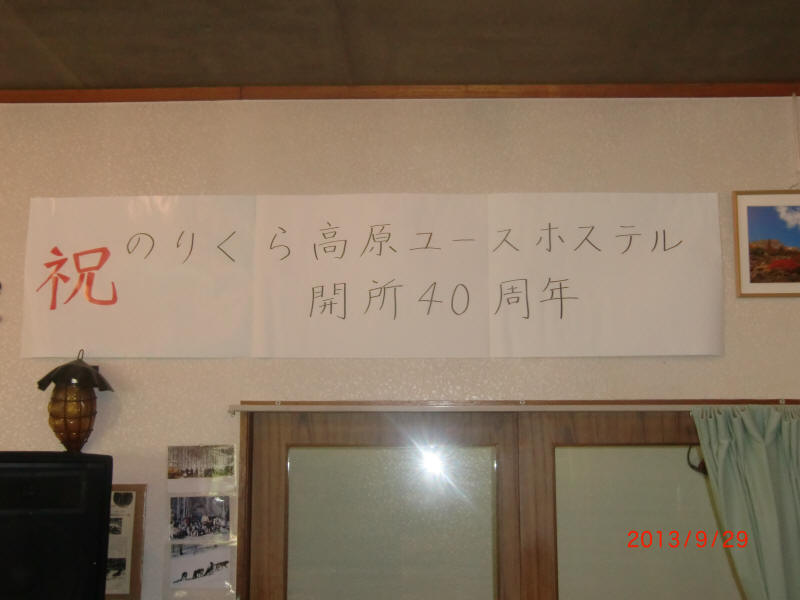 祝 のりくら高原ユースホステル
開所40周年
2013/9/29